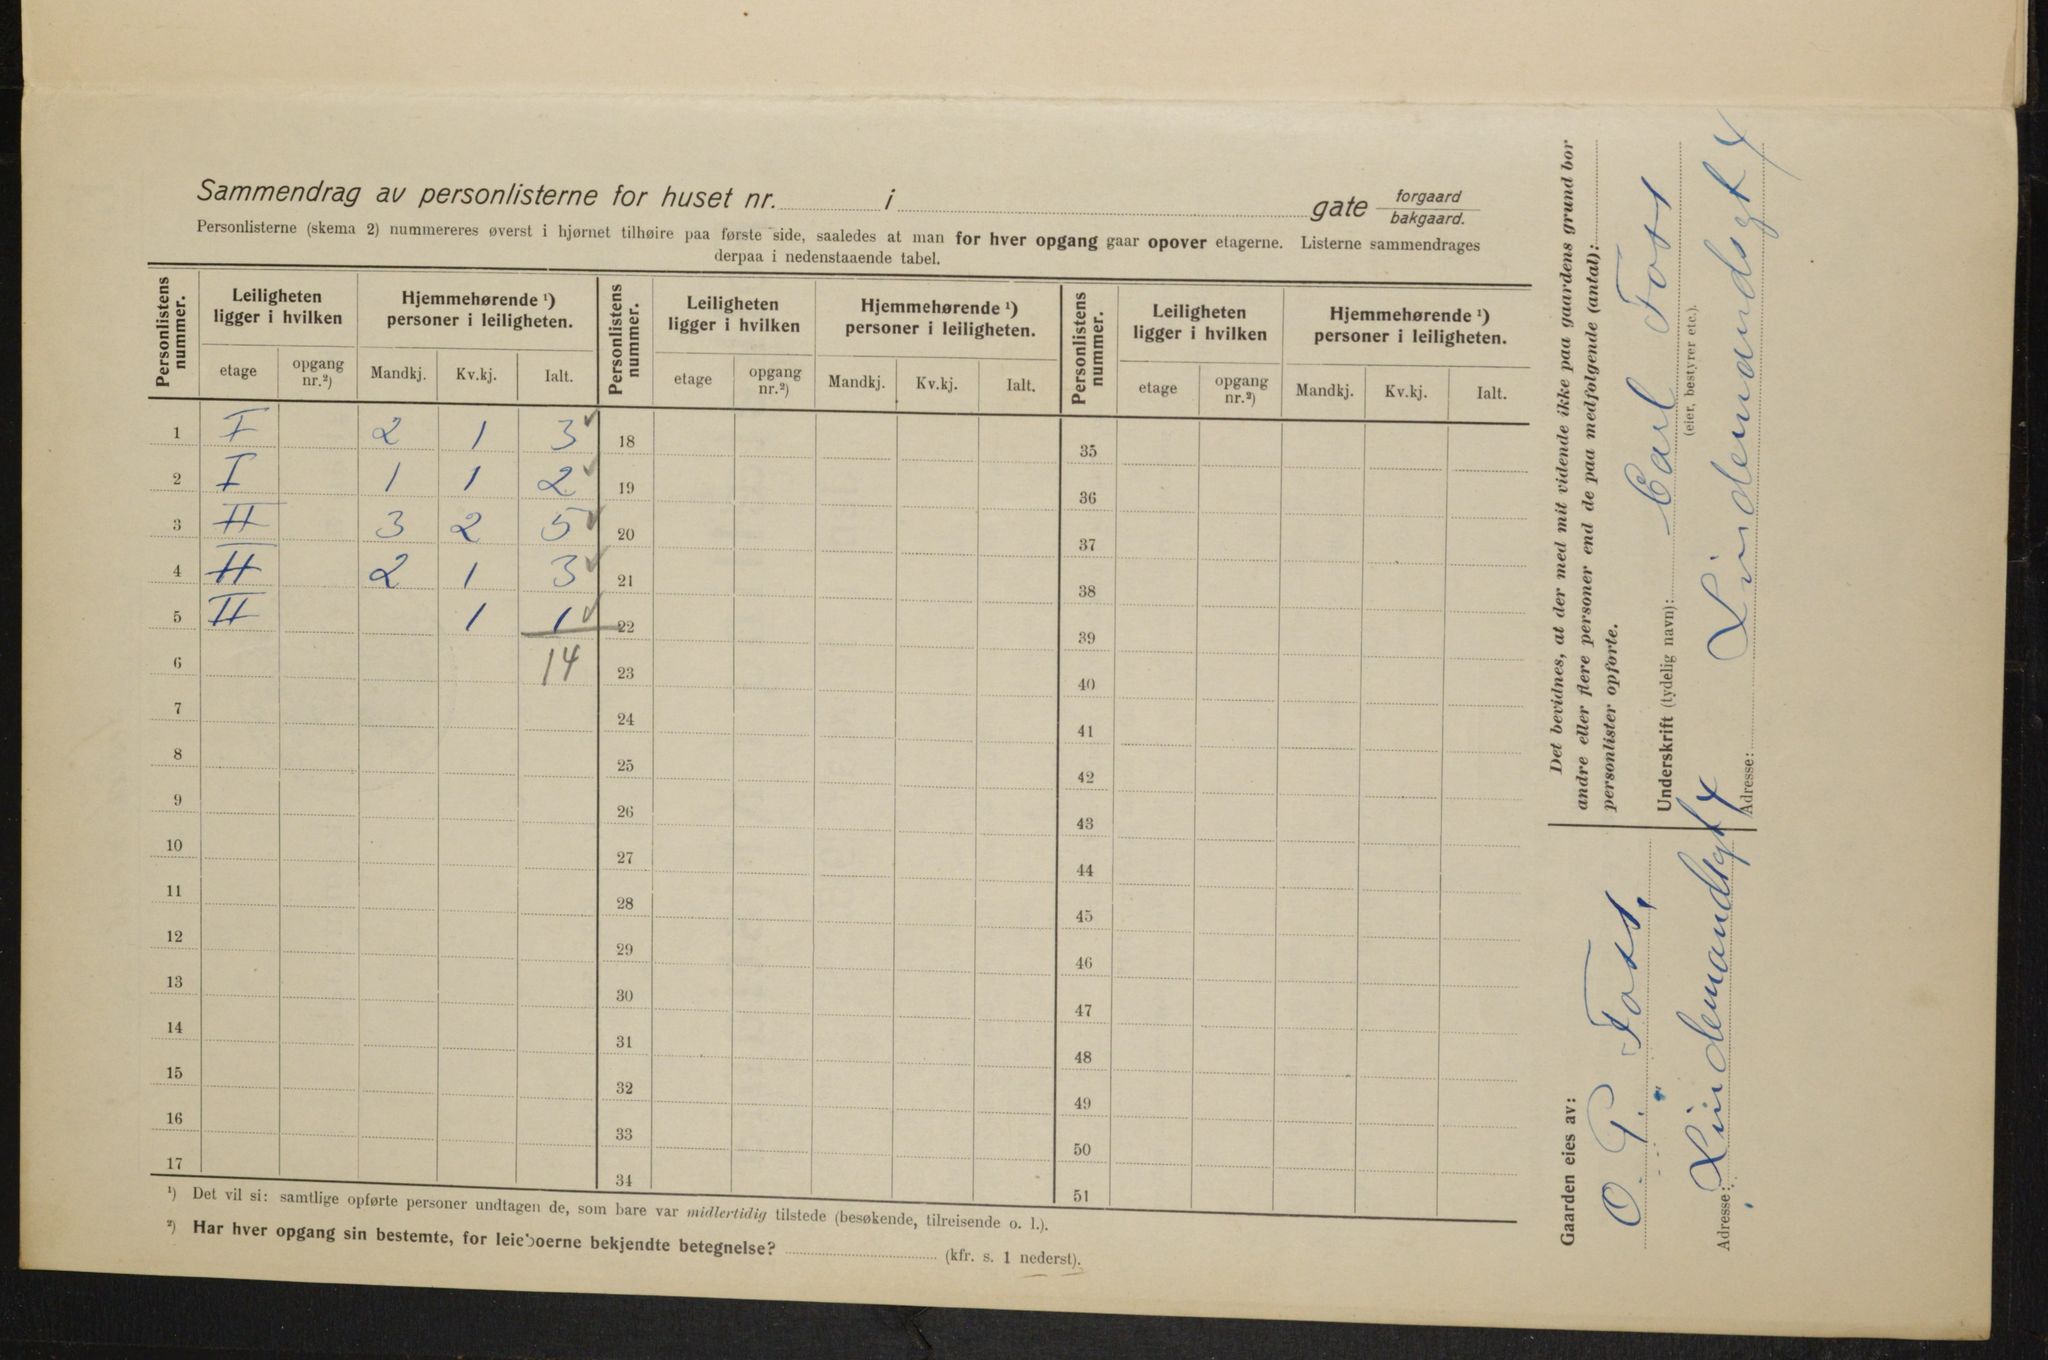 Sammendrag av personlisterne for huset nr. i gate forgaard
bakgaard.
Personlisterne (skema 2) nummereres øverst i hjørnet tilhøire paa første side, saaledes at man for hver opgang gaar opover etagerne. Listerne sammendrages
derpaa i nedenstaaende tabel.
Personlistens nummer. Leiligheten ligger i hvilken Hjemmehørende ¹) personer i leiligheten. Personlistens nummer. Leiligheten ligger i hvilken Hjemmehørende ¹) personer i leiligheten. Personlistens nummer. Leiligheten ligger i hvilken Hjemmehørende ¹) personer i leiligheten.
etage opgang nr.²) Mandkj. Kv.kj. Ialt. etage opgang nr.²) Mandkj. Kv.kj. Ialt. etage opgang nr.²) Mandkj. Kv.kj. Ialt.
1 I 2 1 3 ✓ 18 35
2 I 1 1 2 ✓ 19 36
3 II 3 2 5 ✓ 20 37
4 II 2 1 3 ✓ 21 38
5 II 1 1 ✓ 22 39
6 14 23 40
7 24 41
8 25 42
9 26 43
10 27 44
11 28 45
12 29 46
13 30 47
14 31 48
15 32 49
16 33 50
17 34 51
¹) Det vil si: samtlige opførte personer undtagen de, som bare var midlertidig tilstede (besøkende, tilreisende o. l.).
²) Har hver opgang sin bestemte, for leieboerne bekjendte betegnelse? (kfr. s. 1 nederst).
Det bevidnes, at der med mit vidende ikke paa gaardens grund bor
andre eller flere personer end de paa medfølgende (antal):
personlister opførte.
Underskrift (tydelig navn): Carl Foss
(eier, bestyrer etc.).
Adresse: Lindemandsgt 4
Gaarden eies av:
O. G. Foss,
Adresse: Lindemandsgt 4